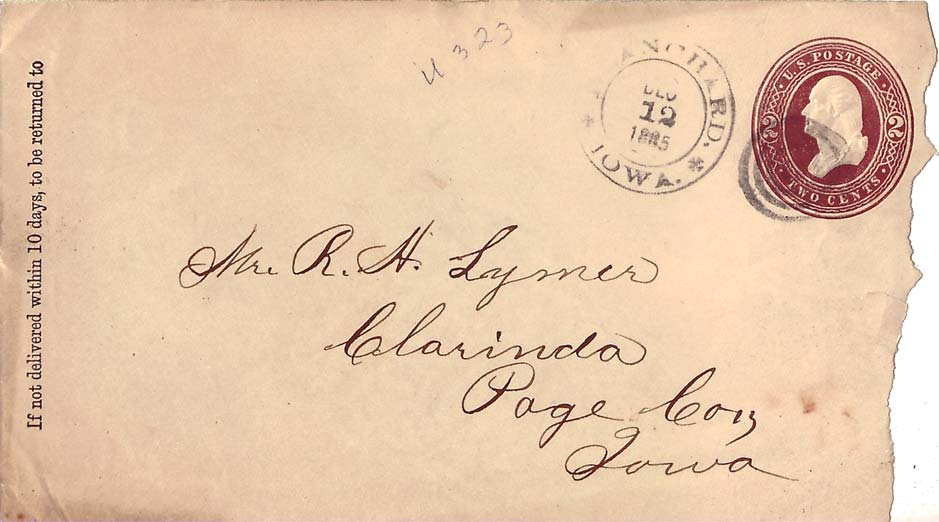 If not delivered within 10 days, to be returned to
U 323
BLANCHARD.
DEC
12
1885
IOWA.
U.S. POSTAGE
2 2
TWO CENTS
Mr. R. H. Lymer
Clarinda
Page Coy
Iowa